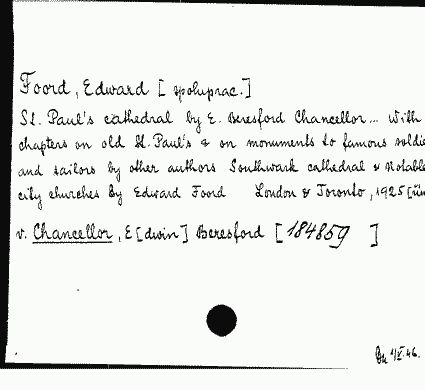 Foord, Edward [spoluprac.]
St. Paul's cathedral by E. Beresford Chancellor... With
chapters on old St. Paul's & on monuments to famous soldie
and sailors by other authors Southwark cathedral & notable
city churches by Edward Foord London & Toronto, 1925
v. Chancellor, E[dwin] Beresford [184859]